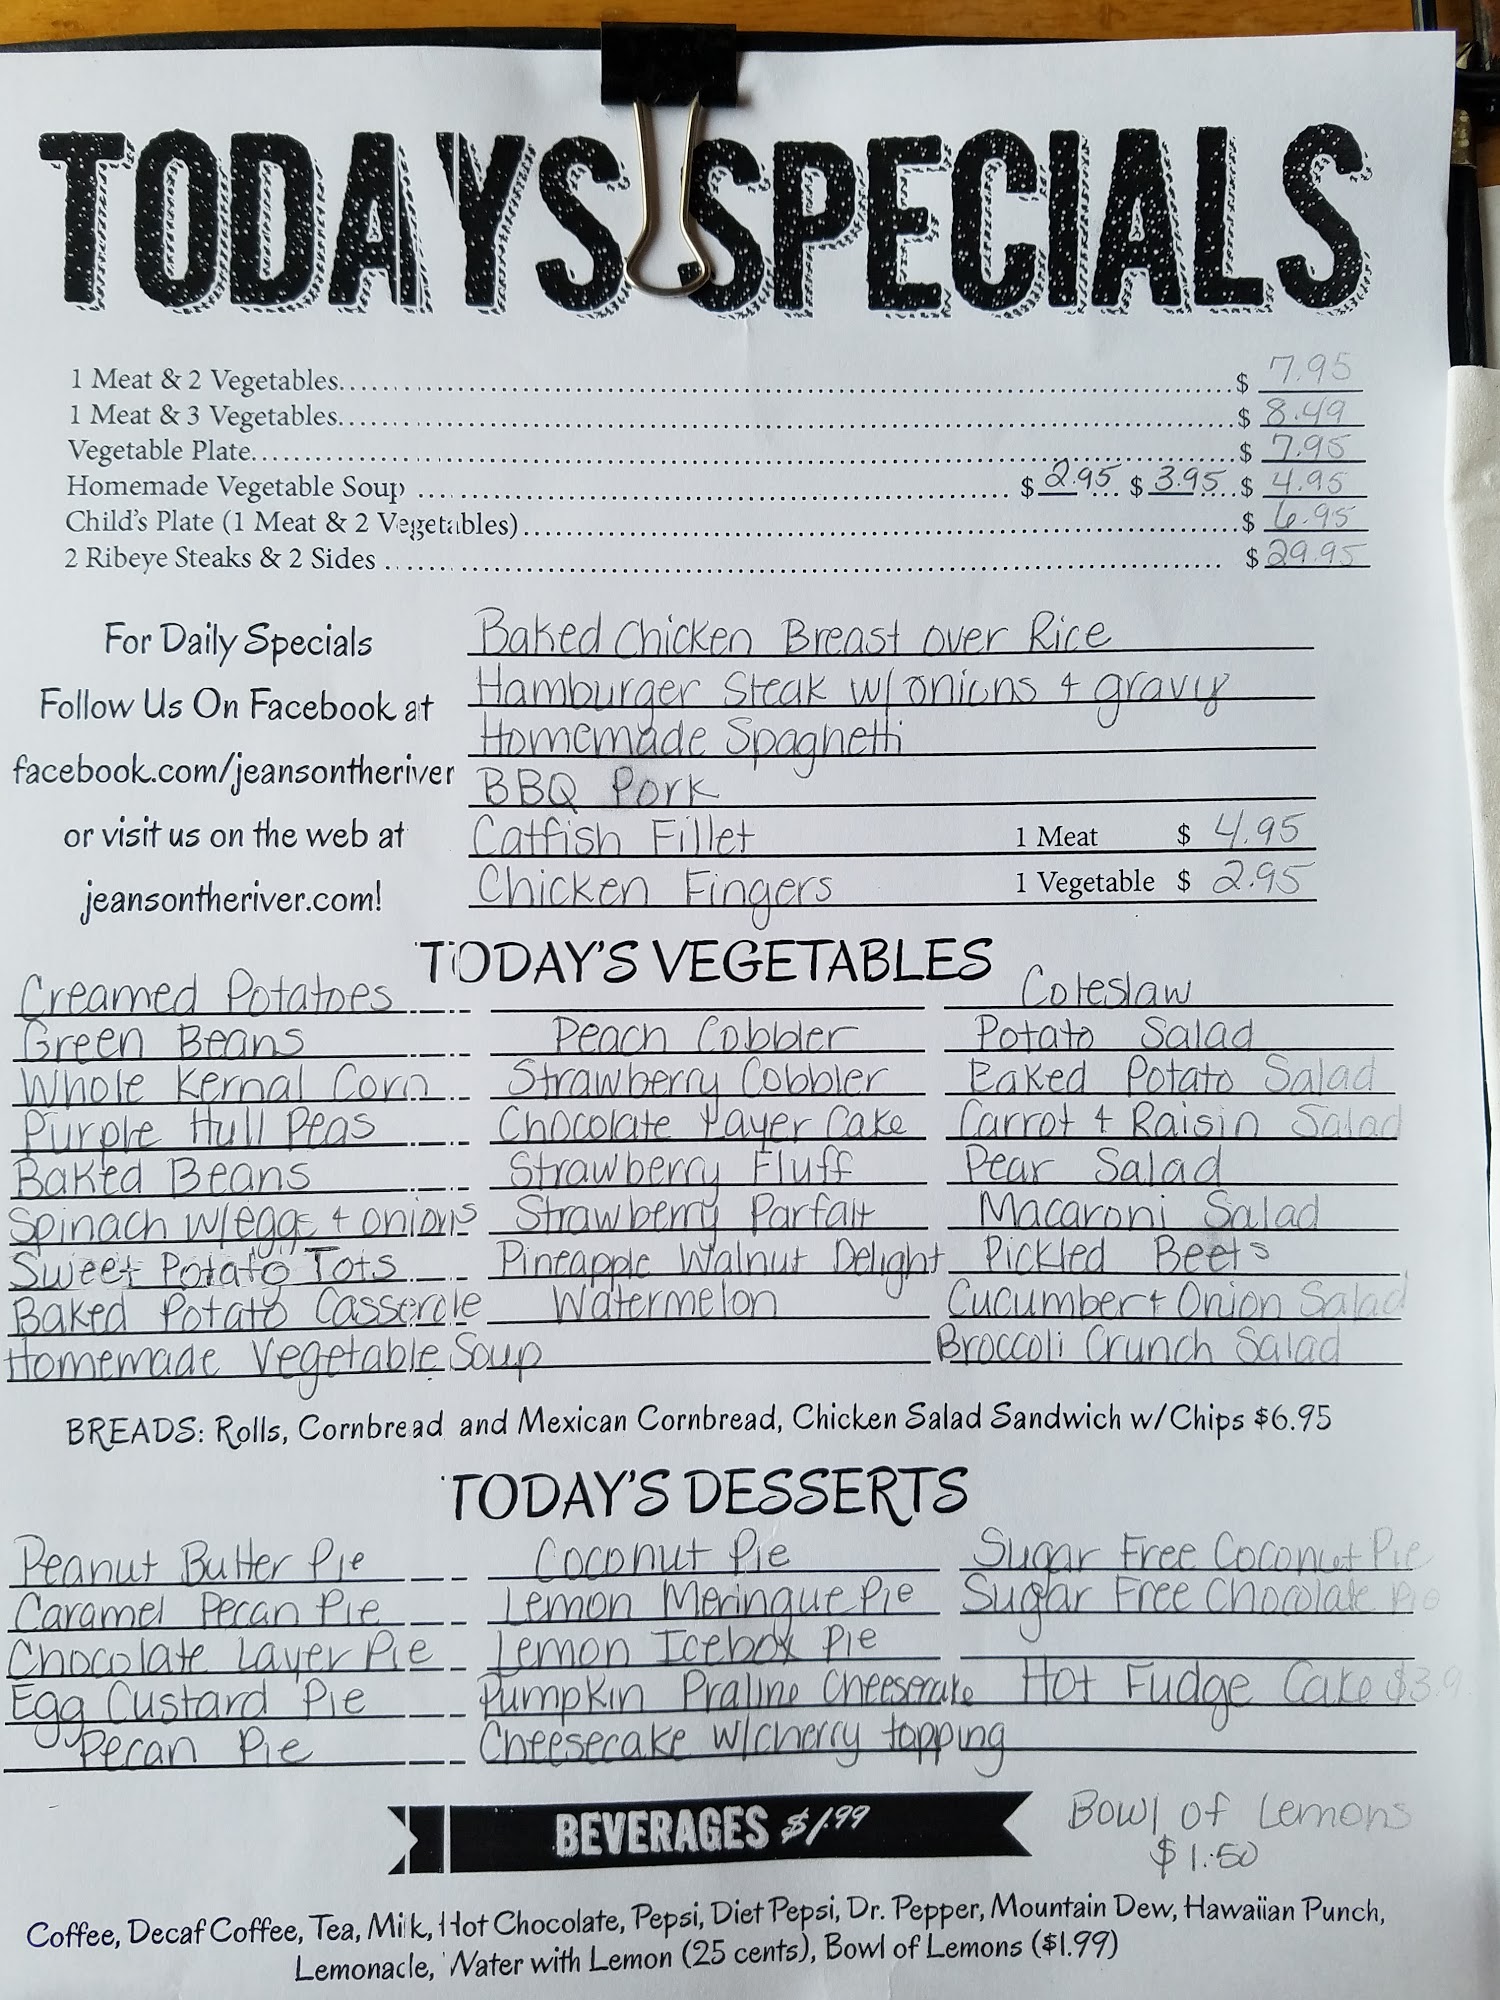 TODAYS SPECIALS
1 Meat & 2 Vegetables $ 7.95
1 Meat & 3 Vegetables $ 8.49
Vegetable Plate $ 7.95
Homemade Vegetable Soup $ 2.95 $ 3.95 $ 4.95
Child's Plate (1 Meat & 2 Vegetables) $ 6.95
2 Ribeye Steaks & 2 Sides $ 29.95
For Daily Specials
Follow Us On Facebook at
facebook.com/jeansontheriver
or visit us on the web at
jeansontheriver.com!
Baked Chicken Breast over Rice
Hamburger Steak w/onions + gravy
Homemade Spaghetti
BBQ Pork
Catfish Fillet 1 Meat $ 4.95
Chicken Fingers 1 Vegetable $ 2.95
TODAY'S VEGETABLES
Creamed Potatoes
Green Beans
Whole Kernal Corn
Purple Hull Peas
Baked Beans
Spinach w/eggs + onions
Sweet Potato Tots
Baked Potato Casserole
Homemade Vegetable Soup
Peach Cobbler
Strawberry Cobbler
Chocolate Layer Cake
Strawberry Fluff
Strawberry Parfait
Pineapple Walnut Delight
Watermelon
Coleslaw
Potato Salad
Baked Potato Salad
Carrot + Raisin Salad
Pear Salad
Macaroni Salad
Pickled Beets
Cucumber + Onion Salad
Broccoli Crunch Salad
BREADS: Rolls, Cornbread and Mexican Cornbread, Chicken Salad Sandwich w/Chips $6.95
TODAY'S DESSERTS
Peanut Butter Pie
Caramel Pecan Pie
Chocolate Layer Pie
Egg Custard Pie
Pecan Pie
Coconut Pie
Lemon Meringue Pie
Lemon Icebox Pie
Pumpkin Praline Cheesecake
Cheesecake w/cherry topping
Sugar Free Coconut Pie
Sugar Free Chocolate Pie
Hot Fudge Cake
BEVERAGES $1.99
Bowl of Lemons
$1.50
Coffee, Decaf Coffee, Tea, Milk, Hot Chocolate, Pepsi, Diet Pepsi, Dr. Pepper, Mountain Dew, Hawaiian Punch,
Lemonade, Water with Lemon (25 cents), Bowl of Lemons ($1.99)